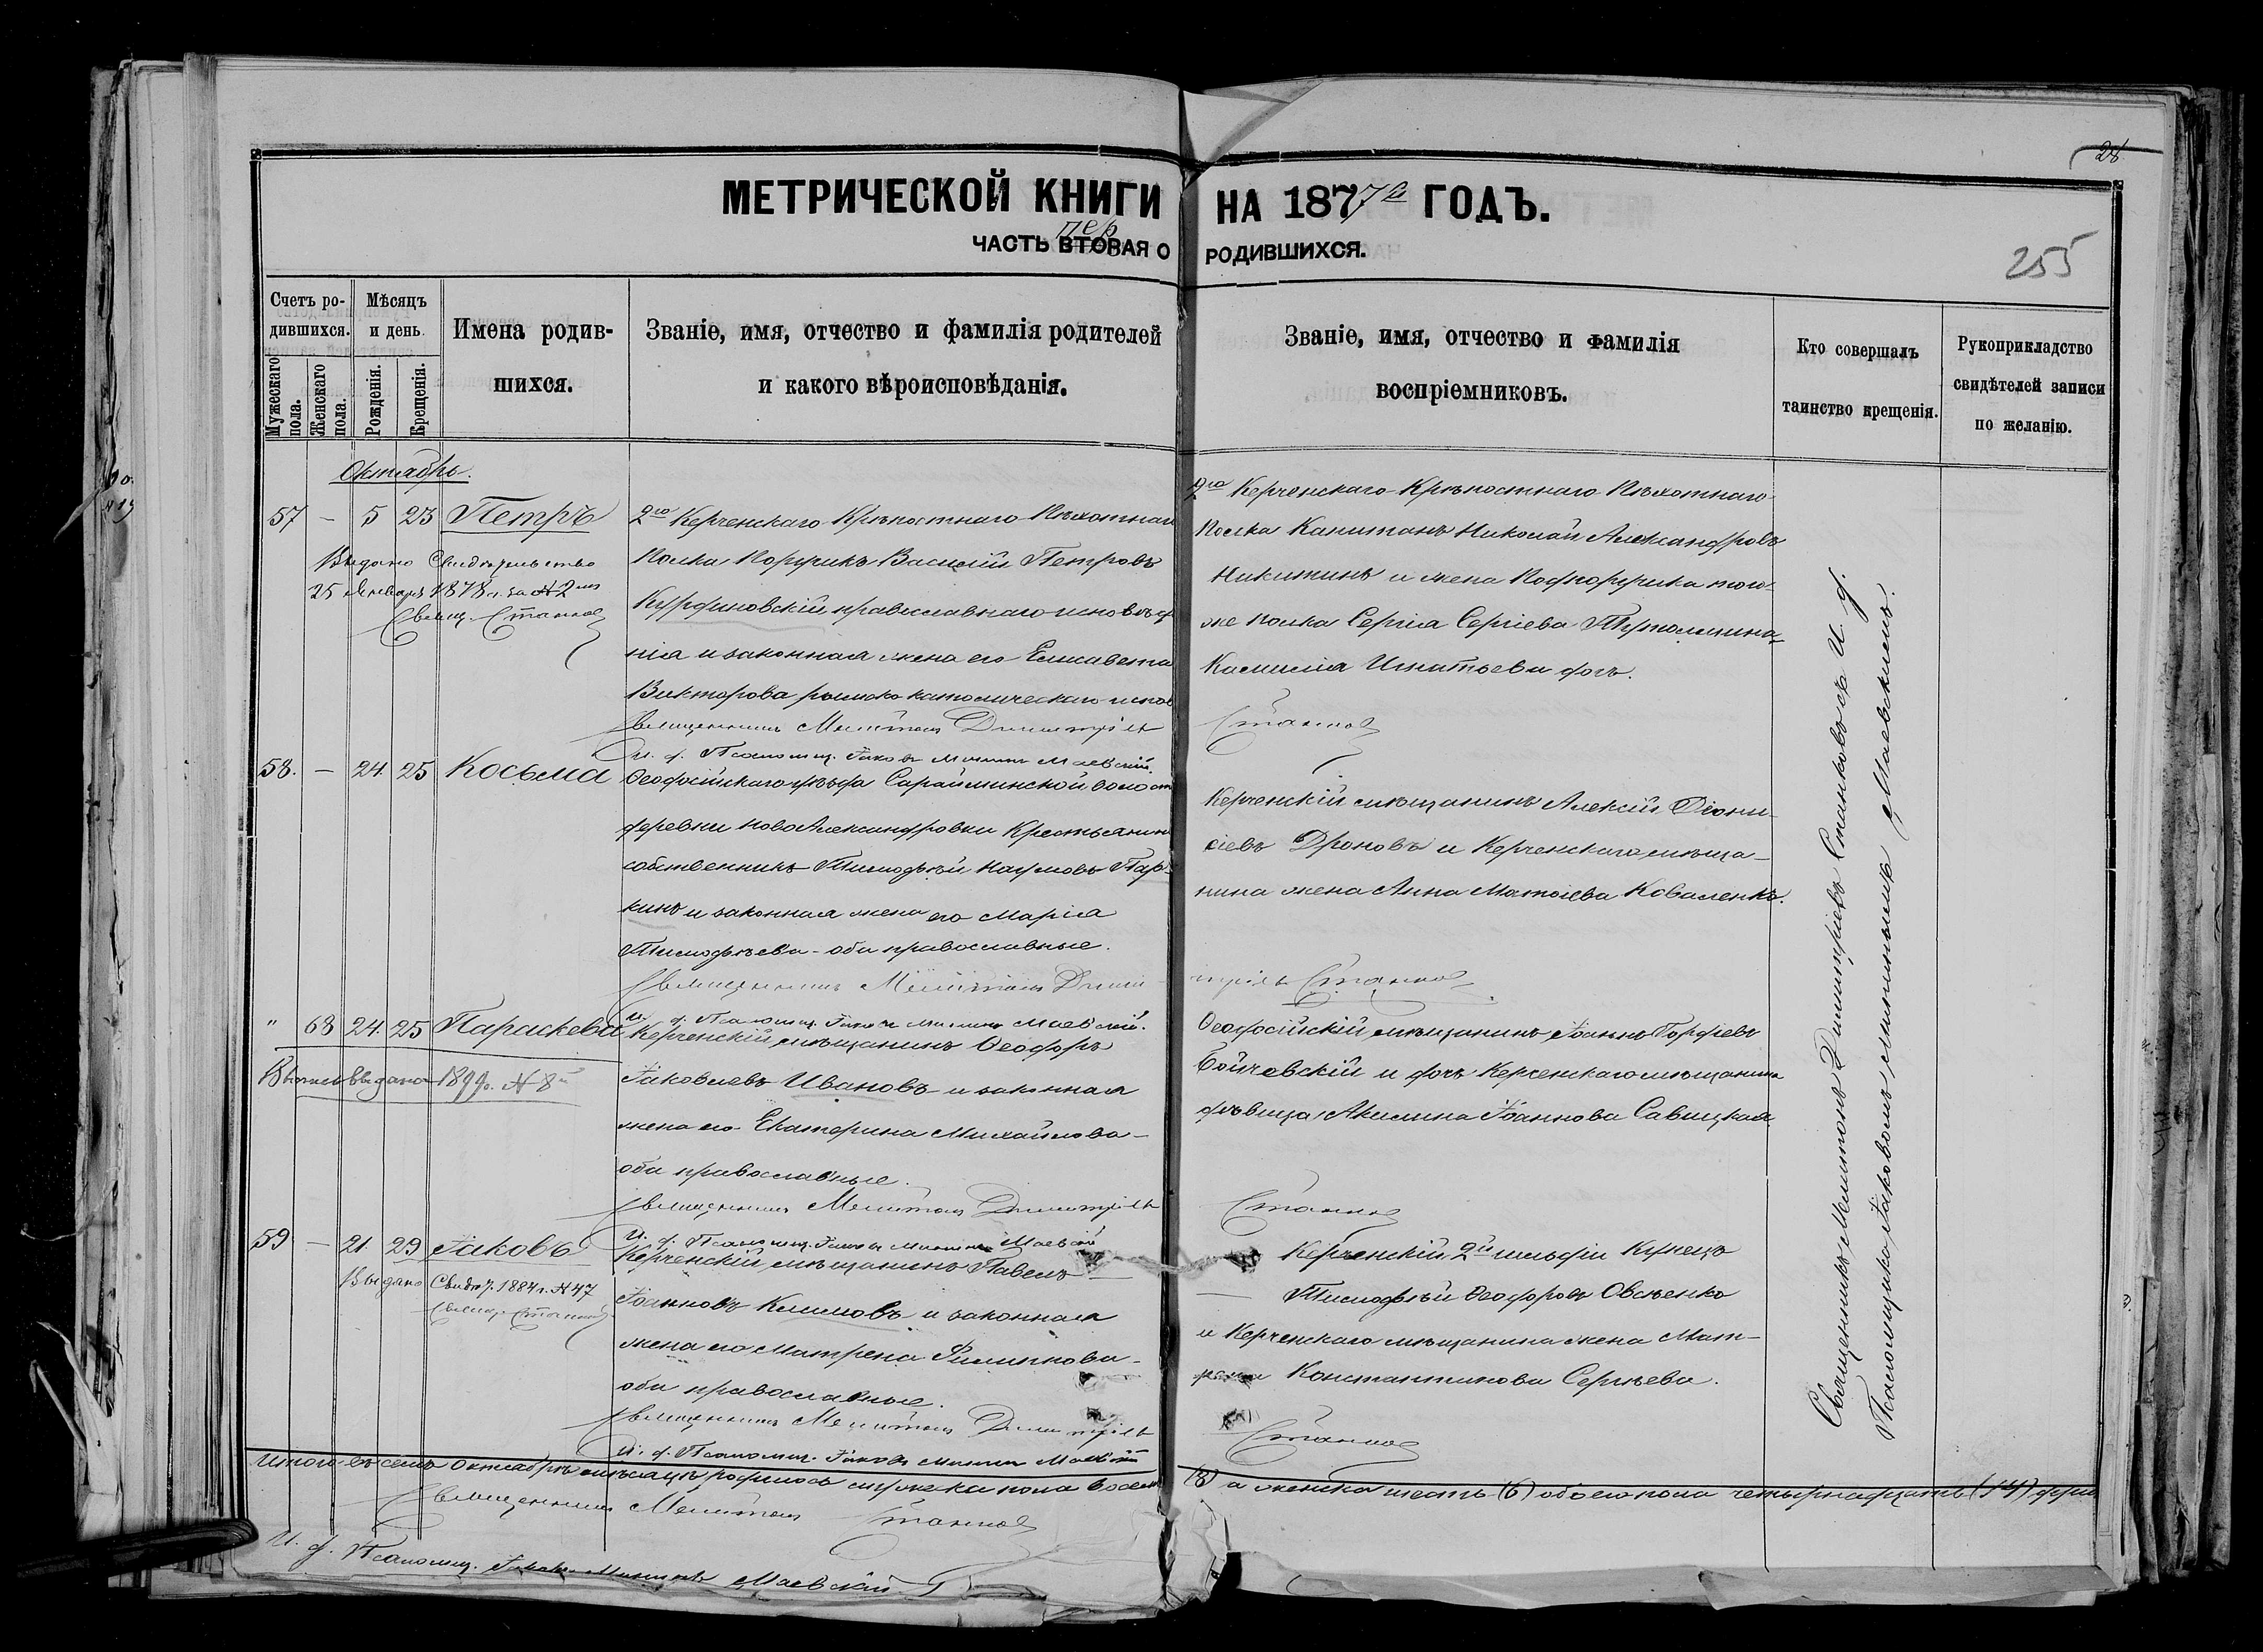 28
МЕТРИЧЕСКОЙ КНИГИ НА 1877й ГОДЪ.
пер
ЧАСТЬ ВТОРАЯ О РОДИВШИХСЯ.
255
Счетъ ро-
дившихся.
Мужескаго пола.
Женскаго пола.
Мѣсяцъ
и день.
Рожденія.
Крещенія.
Имена родив-
шихся.
Званіе, имя, отчество и фамилія родителей
и какого вѣроисповѣданія.
Званіе, имя, отчество и фамилія
воспріемниковъ.
Кто совершалъ
таинство крещенія.
Рукоприкладство
свидѣтелей записи
по желанію.
Октябрь.
57 – 5 23 Петръ
Выдано Свидѣтельство
25 Января 1878 г. за № 2м
Свящ. Станков
2го Керченскаго Крѣпостнаго Пѣхотнаго
Полка Поручикъ Василій Петровъ
Курдиновскій православнаго исповѣда
нія и законная жена его Елисавета
Викторова римско католическаго испов
Священникъ Мелитонъ Димитріевъ
И. д. Псаломщ. Іаковъ Маевскій.
2го Керченскаго Крѣпостнаго Пѣхотнаго
Полка Капитанъ Николай Александровъ
Никитинъ и жена Подпоручика того-
же полка Сергія Сергіева
Игнатьева дочь.
Станков
58. – 24. 25 Косьма
Ѳеодосійскаго уѣзда Сарайминской волост
деревни НовоАлександровки Крестьянинъ
собственникъ Тимофѣй Наумовъ Пар-
кинъ и законная жена его Марія
Тимофѣева – оба православные.
Священникъ Мелитонъ Дими-
И. д. Псаломщ. Іаковъ Маевскій.
Керченскій мѣщанинъ Алексій Діони-
сіевъ Дроновъ и Керченскаго мѣща-
нина жена Анна Матѳіева Коваленкъ.
тріевъ Станков
" 68 24. 25 Параскева
выдана 1899 г. № 8й
Керченскій мѣщанинъ Ѳеодоръ
Іаковлевъ Ивановъ и законная
жена его Екатерина Михайлова –
оба православные.
Священникъ Мелитонъ Димитріевъ
И. д. Псаломщ. Іаковъ Маевскій
Ѳеодосійскій мѣщанинъ Іоаннъ Гордіевъ
Бойчевскій и дочь Керченскаго мѣщанина
дѣвица Акилина Іоаннова Савицкая
Станков
59 – 21. 29 Іаковъ
Выдано Свидѣт. 1884 г. № 47
Свящ. Станков
Керченскій мѣщанинъ Павелъ –
Іоанновъ Климовъ и законная
жена его Матрена Филиппова –
оба православные.
Священникъ Мелитонъ Димитріевъ
И. д. Псаломщ. Іаковъ Маевскій
Керченскій 2й гильдіи Купецъ
Тимофѣй Ѳеодоровъ Овсѣенко
и Керченскаго мѣщанина жена Мат-
рона Константинова Сергѣева.
Станков
Священникъ Мелитонъ Димитріевъ Станковъ съ И. д.
Псаломщика Іаковомъ Маевскимъ.
Итого въ семъ Октябрѣ мѣсяцѣ родилось мужеска пола восемь (8) а женска шесть (6) обоего пола четырнадцать (14) душъ
Священникъ Мелитонъ Станков
И. д. Псаломщ. Іаковъ Маевскій